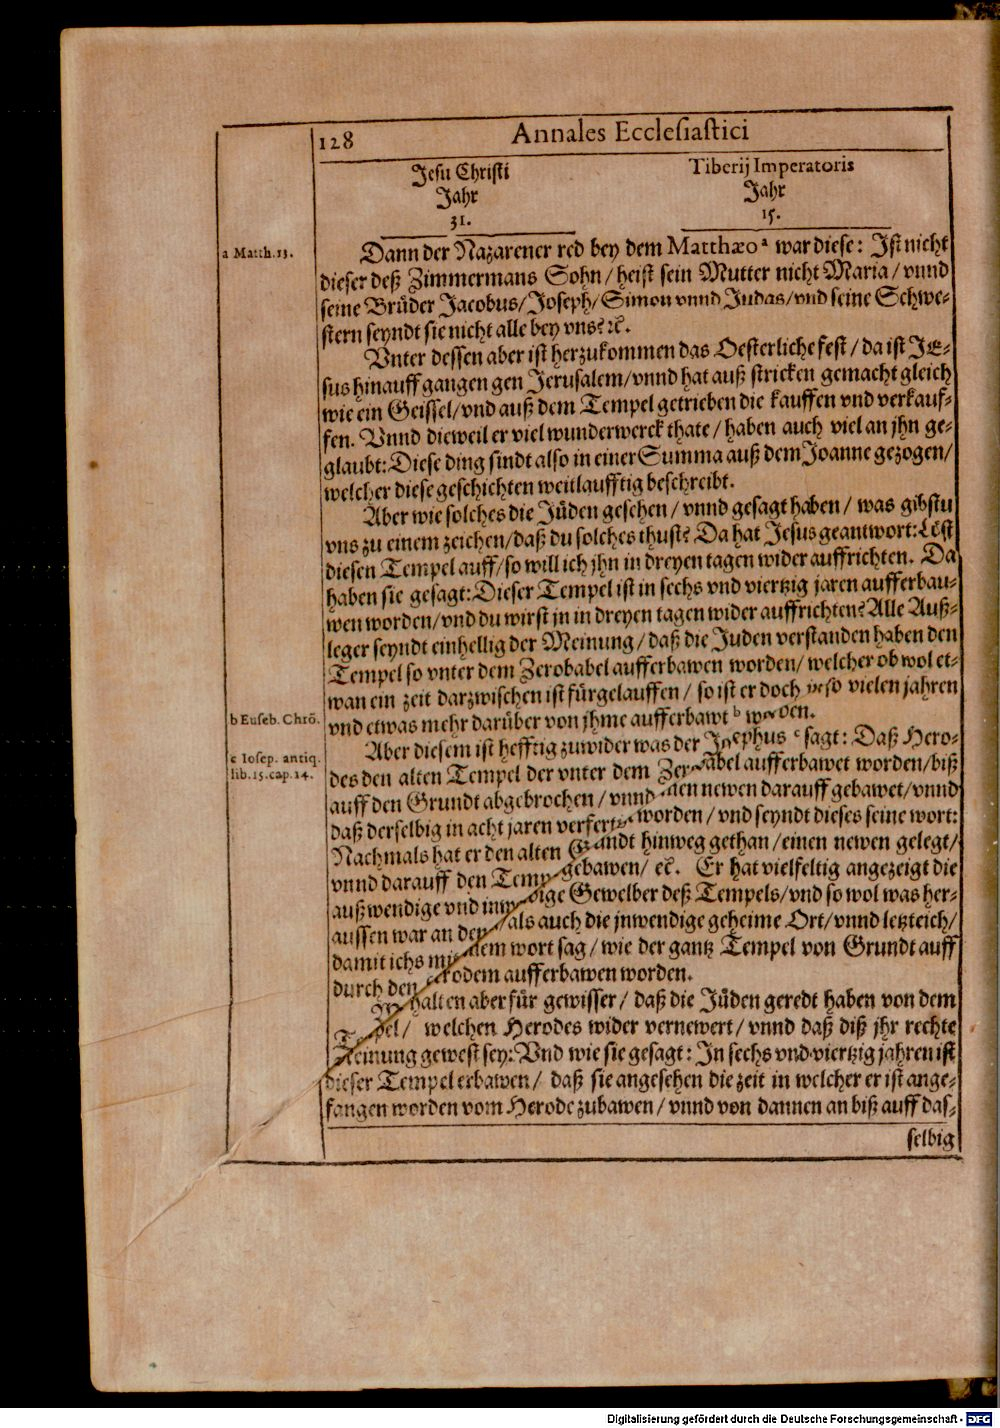 128 Annales Ecclesiastici
Jesu Christi Tiberij Imperatoris
Jahr Jahr
31. 15.
a Matth. 13.
Dann der Nazarener red bey dem Matthæo ᵃ war diese: Ist nicht
dieser deß Zimmermans Sohn / heist sein Mutter nicht Maria / vnnd
seine Brüder Jacobus / Joseph / Simon vnnd Judas / vnd seine Schwe-
stern seyndt sie nicht alle bey vns? ꝛc.
Vnter dessen aber ist herzukommen das Oesterliche fest / da ist JE-
sus hinauff gangen gen Jerusalem / vnnd hat auß stricken gemacht gleich
wie ein Geissel / vnd auß dem Tempel getrieben die kauffen vnd verkauf-
fen. Vnnd dieweil er viel wunderwerck thate / haben auch viel an jhn ge-
glaubt: Diese ding sindt also in einer Summa auß dem Joanne gezogen /
welcher diese geschichten weitlaufftig beschreibt.
Aber wie solches die Jüden gesehen / vnnd gesagt haben / was gibstu
vns zu einem zeichen / daß du solches thust? Da hat Jesus geantwort: Löst
diesen Tempel auff / so will ich jhn in dreyen tagen wider auffrichten. Da
haben sie gesagt: Dieser Tempel ist in sechs vnd viertzig jaren aufferbau-
wen worden / vnd du wirst jn in dreyen tagen wider auffrichten? Alle Auß-
leger seyndt einhellig der Meinung / daß die Juden verstanden haben den
Tempel so vnter dem Zerobabel aufferbawen worden / welcher ob wol et-
wan ein zeit darzwischen ist fürgelauffen / so ist er doch so vielen jahren
b Euseb. Chrõ.
vnd etwas mehr darüber von jhme aufferbawt ᵇ worden.
c Iosep. antiq.
lib. 15. cap. 14.
Aber diesem ist hefftig zuwider was der Josephus ᶜ sagt: Daß Hero-
des den alten Tempel der vnter dem Zerobabel aufferbawet worden / biß
auff den Grundt abgebrochen / vnnd newen darauff gebawet / vnnd
daß derselbig in acht jaren verfertigt worden / vnd seyndt dieses seine wort:
Nachmals hat er den alten Grundt hinweg gethan / einen newen gelegt /
vnnd darauff den Tempel gebawen / ec. Er hat vielfeltig angezeigt die
außwendige vnd inwendige Gewelber deß Tempels / vnd so wol was her-
aussen war an den / als auch die jnwendige geheime Ort / vnnd letzteich /
damit ichs mit einem wort sag / wie der gantz Tempel von Grundt auff
durch den Herodem aufferbawen worden.
halten aber für gewisser / daß die Jüden geredt haben von dem
Tempel / welchen Herodes wider vernewert / vnnd daß diß jhr rechte
Meinung gewest sey: Vnd wie sie gesagt: In sechs vnd viertzig jahren ist
dieser Tempel erbawen / daß sie angesehen die zeit in welcher er ist ange-
fangen worden vom Herode zubawen / vnnd von dannen an biß auff das-
selbig
Digitalisierung gefördert durch die Deutsche Forschungsgemeinschaft - DFG